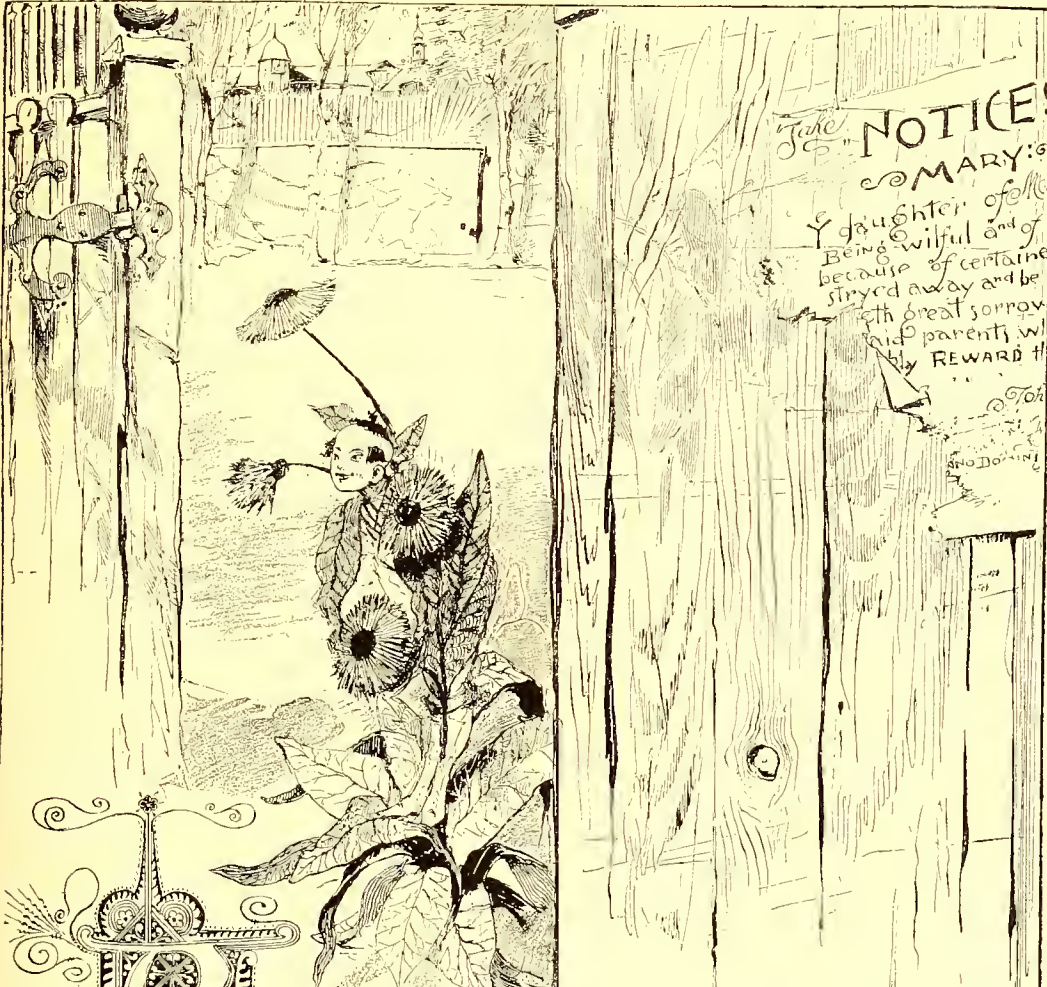 "Take" NOTICE
MARY:
Ye daughter of
Being wilful and of
because of certaine
stryed away and be
eth great sorrow
aid parents
bly REWARD
Joh
NNO DOMINI